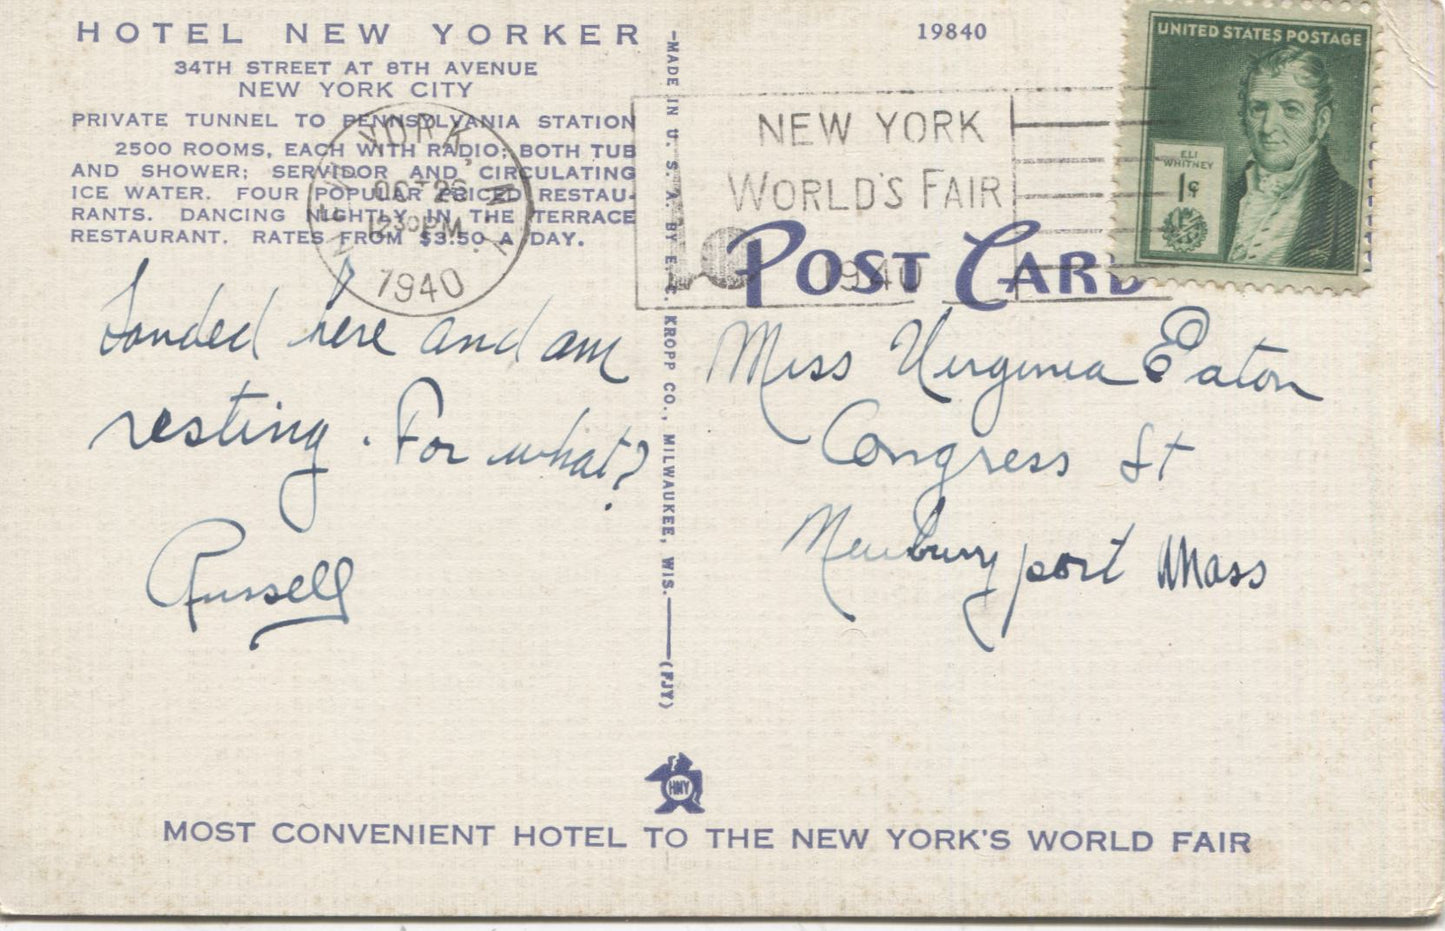 HOTEL NEW YORKER
34TH STREET AT 8TH AVENUE
NEW YORK CITY
PRIVATE TUNNEL TO PENNSYLVANIA STATION
2500 ROOMS, EACH WITH RADIO; BOTH TUB
AND SHOWER; SERVIDOR AND CIRCULATING
ICE WATER. FOUR POPULAR PRICED RESTAU-
RANTS. DANCING NIGHTLY IN THE TERRACE
RESTAURANT. RATES FROM $3.50 A DAY.
NEW YORK, N.Y.
OCT 26
12 30 PM
1940
Landed here and am
resting. For what?
Russell
-MADE IN U. S. A. BY E. C. KROPP CO., MILWAUKEE, WIS.—(FJY)
19840
NEW YORK
WORLD'S FAIR
1940
POST CARD
UNITED STATES POSTAGE
ELI
WHITNEY
1¢
Miss Virginia Eaton
Congress St
Newburyport Mass
HNY
MOST CONVENIENT HOTEL TO THE NEW YORK'S WORLD FAIR